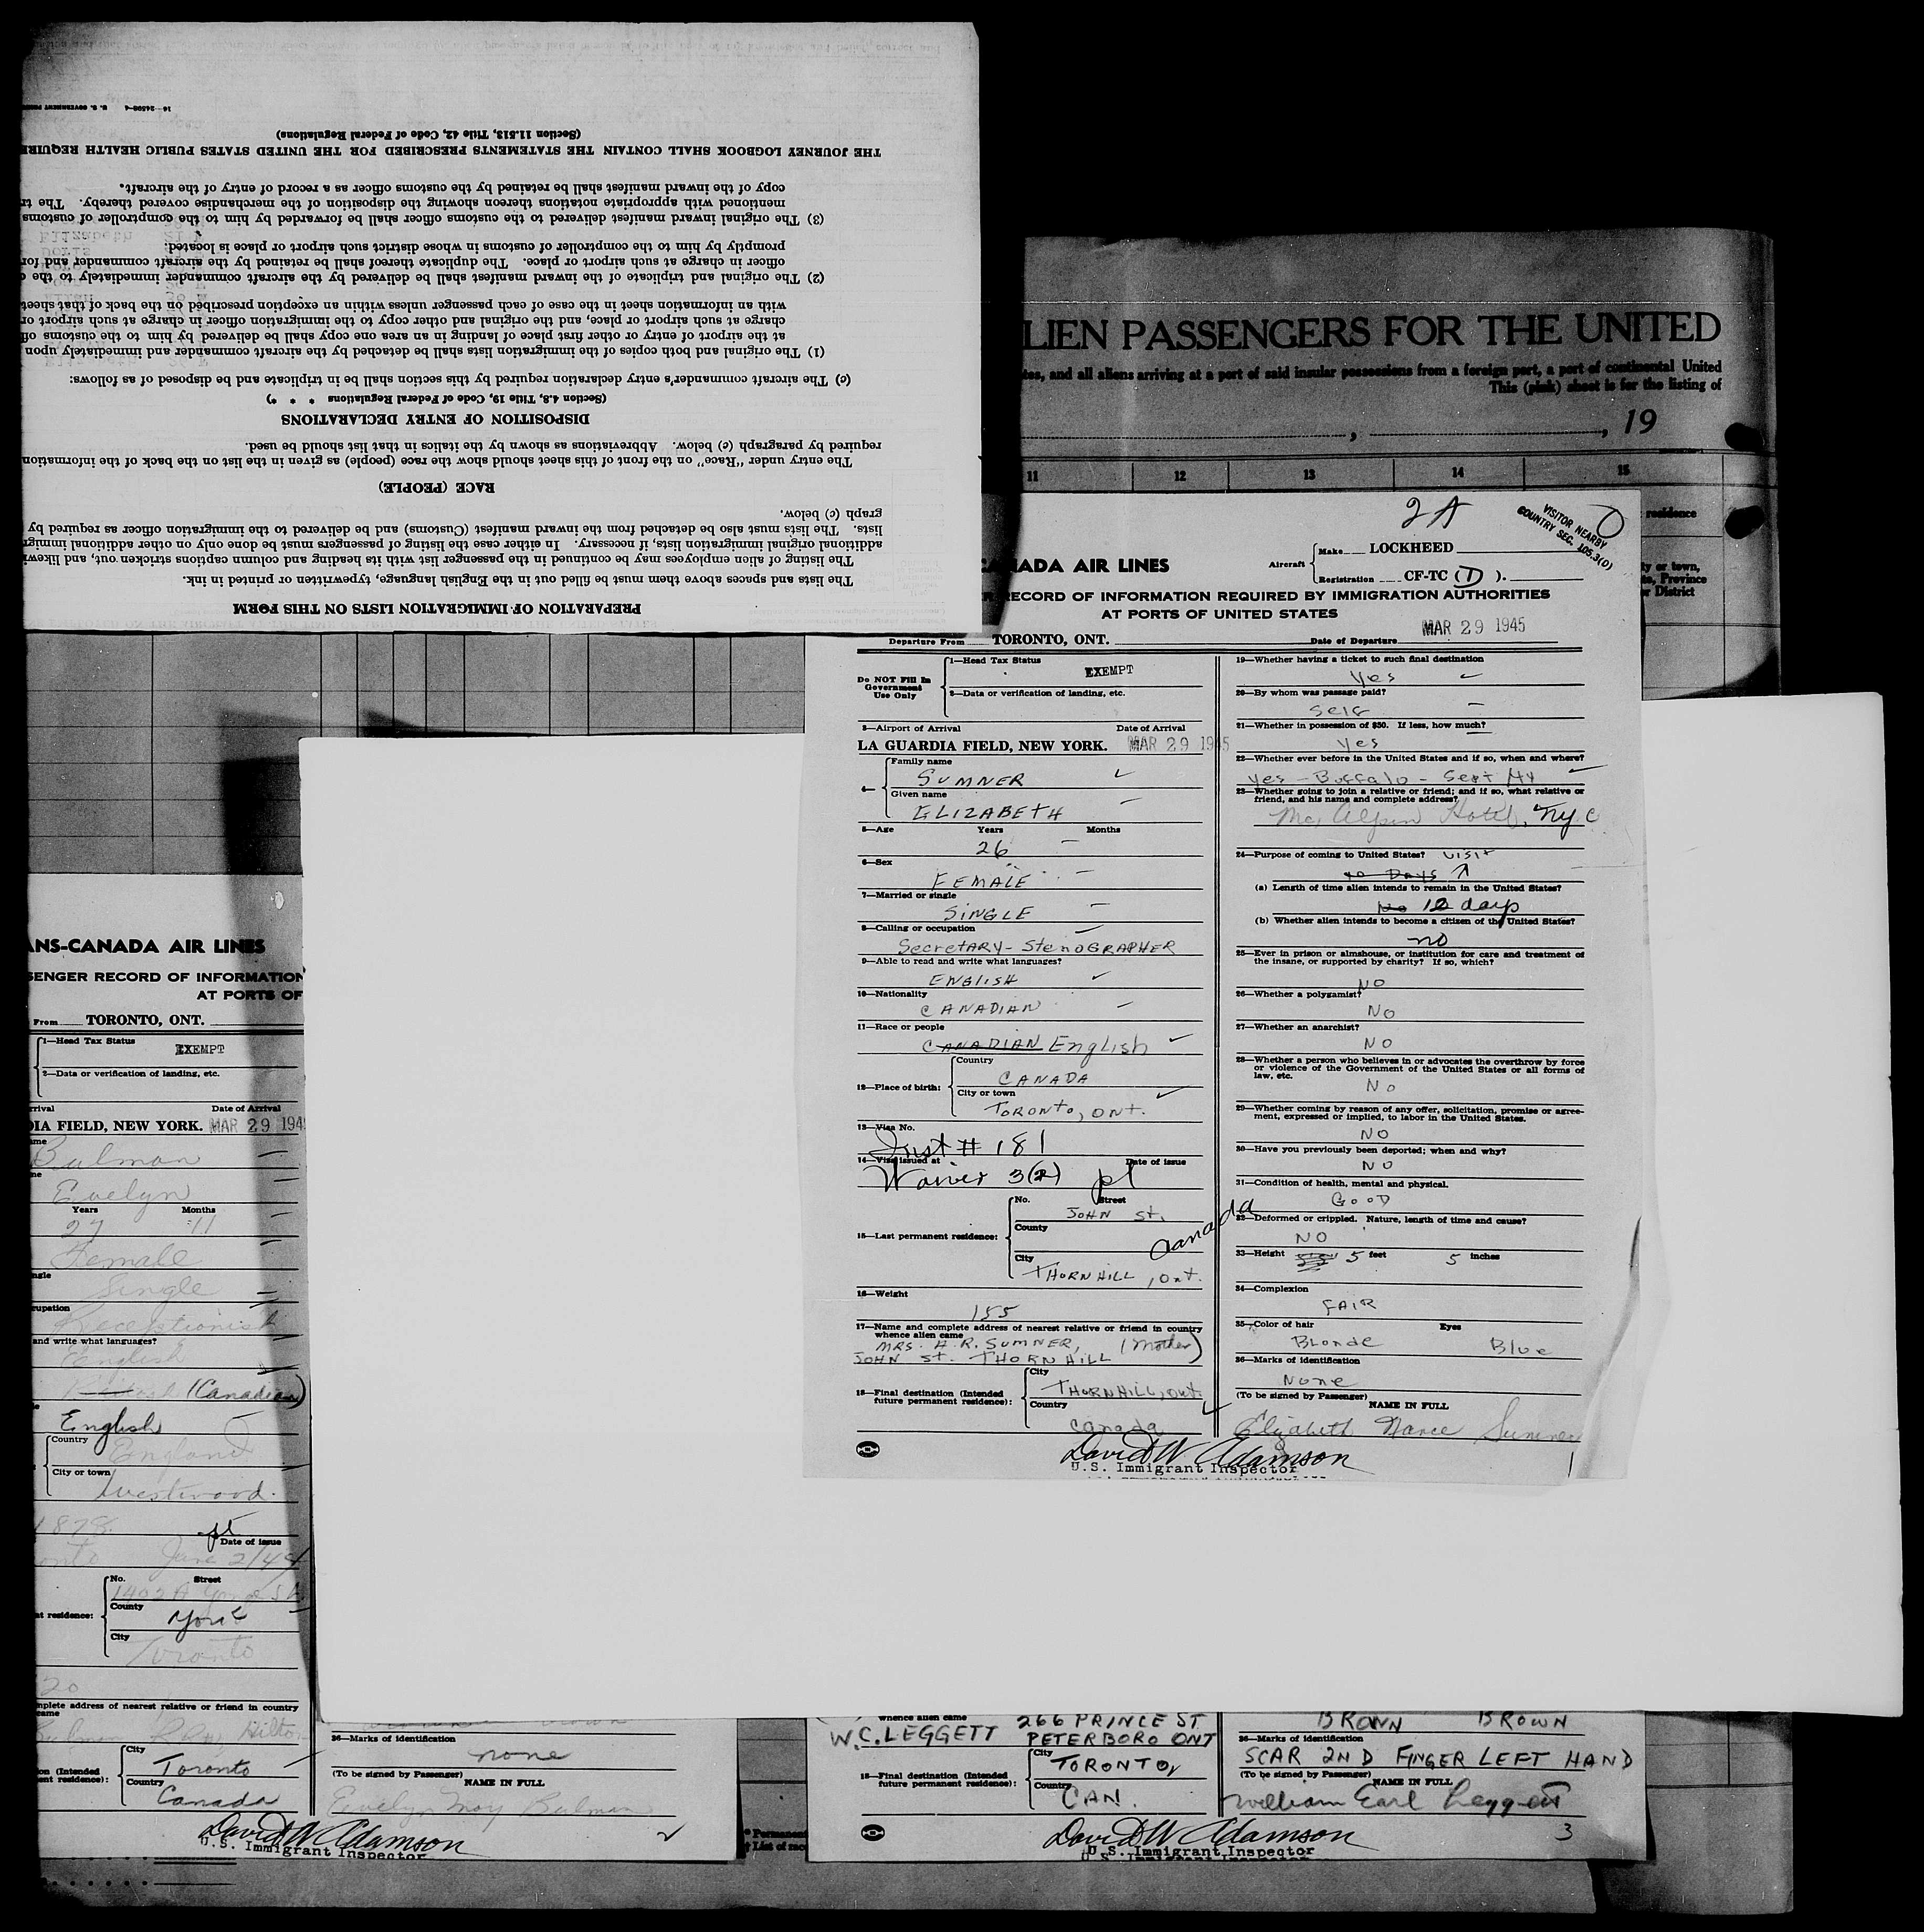 16—24598-4 U. S. GOVERNMENT
(Section 11.513, Title 42, Code of Federal Regulations)
THE JOURNEY LOGBOOK SHALL CONTAIN THE STATEMENTS PRESCRIBED FOR THE UNITED STATES PUBLIC HEALTH
copy of the inward manifest shall be retained by the customs officer as a record of entry of the aircraft.
mentioned with appropriate notations thereon showing the disposition of the merchandise covered thereby. The
(3) The original inward manifest delivered to the customs officer shall be forwarded by him to the comptroller of customs
promptly by him to the comptroller of customs in whose district such airport or place is located.
officer in charge at such airport or place. The duplicate thereof shall be retained by the aircraft commander and
(2) The original and triplicate of the inward manifest shall be delivered by the aircraft commander immediately to the
with an information sheet in the case of each passenger unless within an exception prescribed on the back of that sheet
charge at such airport or place, and the original and other copy to the immigration officer in charge at such airport or
at the airport of entry or other first place of landing in an area one copy shall be delivered by him to the customs
(1) The original and both copies of the immigration lists shall be detached by the aircraft commander and immediately upon
(c) The aircraft commander's entry declaration required by this section shall be in triplicate and be disposed of as follows:
(Section 4.8, Title 19, Code of Federal Regulations * * *)
DISPOSITION OF ENTRY DECLARATIONS
required by paragraph (c) below. Abbreviations as shown by the italics in that list should be used.
The entry under "Race" on the front of this sheet should show the race (people) as given in the list on the back of the information
RACE (PEOPLE)
graph (c) below.
lists. The lists must also be detached from the inward manifest (Customs) and be delivered to the immigration officer as required by
additional original immigration lists, if necessary. In either case the listing of passengers must be done only on other additional
The listing of alien employees may be continued in the passenger list with its heading and column captions stricken out, and
The lists and spaces above them must be filled out in the English language, typewritten or printed in ink.
PREPARATION OF IMMIGRATION LISTS ON THIS FORM
LIEN PASSENGERS FOR THE UNITED
tes, and all aliens arriving at a port of said insular possessions from a foreign port, a port of continental United
This (pink) sheet is for the listing of
, , 19
11 12 13 14 15
residence
ty or town,
te, Province
or District
2A
VISITOR NEARBY
COUNTRY SEC. 105.3(D)
CANADA AIR LINES
Aircraft
Make LOCKHEED
Registration CF-TC (D ).
R RECORD OF INFORMATION REQUIRED BY IMMIGRATION AUTHORITIES
AT PORTS OF UNITED STATES
Departure From TORONTO, ONT. Date of Departure MAR 29 1945
Do NOT Fill In
Government
Use Only
1—Head Tax Status EXEMPT
2—Data or verification of landing, etc.
3—Airport of Arrival Date of Arrival
LA GUARDIA FIELD, NEW YORK. MAR 29 1945
4— Family name
SUMNER
Given name
ELIZABETH
5—Age Years Months
26
6—Sex
FEMALE
7—Married or single
SINGLE
8—Calling or occupation
Secretary-Stenographer
9—Able to read and write what languages?
ENGLISH
10—Nationality
CANADIAN
11—Race or people
CANADIAN English
12—Place of birth:
Country
CANADA
City or town
TORONTO, ONT.
13—Visa No.
Inst # 181
14—Visa issued at Date of issue
Waiver 3(2) pt
15—Last permanent residence:
No. Street
JOHN St.
County
Canada
City
THORNHILL, Ont.
16—Weight
155
17—Name and complete address of nearest relative or friend in country
whence alien came
MRS. H.R. SUMNER, (Mother)
JOHN St. THORNHILL
18—Final destination (Intended
future permanent residence):
City
THORNHILL, Ont.
Country
Canada
19—Whether having a ticket to such final destination
Yes
20—By whom was passage paid?
Self
21—Whether in possession of $50. If less, how much?
Yes
22—Whether ever before in the United States and if so, when and where?
Yes - Buffalo - Sept 44
23—Whether going to join a relative or friend; and if so, what relative or
friend, and his name and complete address?
Mc Alpin Hotel, NYC
24—Purpose of coming to United States? Visit
10 Days
(a) Length of time alien intends to remain in the United States?
No 12 days
(b) Whether alien intends to become a citizen of the United States?
no
25—Ever in prison or almshouse, or institution for care and treatment of
the insane, or supported by charity? If so, which?
NO
26—Whether a polygamist?
NO
27—Whether an anarchist?
NO
28—Whether a person who believes in or advocates the overthrow by force
or violence of the Government of the United States or all forms of
law, etc.
NO
29—Whether coming by reason of any offer, solicitation, promise or agree-
ment, expressed or implied, to labor in the United States.
NO
30—Have you previously been deported; when and why?
NO
31—Condition of health, mental and physical.
GOOD
32—Deformed or crippled. Nature, length of time and cause?
NO
33—Height 5 feet 5 inches
34—Complexion
FAIR
35—Color of hair Eyes
Blonde Blue
36—Marks of identification
None
(To be signed by Passenger)
NAME IN FULL
Elizabeth Sumner
David W Adamson
U.S. Immigrant Inspector
1
ANS-CANADA AIR LINES
SENGER RECORD OF INFORMATION
AT PORTS OF
From TORONTO, ONT.
1—Head Tax Status
EXEMPT
2—Data or verification of landing, etc.
rrival Date of Arrival
DIA FIELD, NEW YORK. MAR 29 194
ame
Bulman
ne
Evelyn
Years Months
27 11
Female
ngle
Single
cupation
Receptionist
and write what languages?
English
British (Canadian)
le
English
Country
England
City or town
Westwood
1878. pt
Date of issue
onto June 2/44
No. Street
1402A
nt residence:
County
York
City
Toronto
20
mplete address of nearest relative or friend in country
came
Hilto
on (Intended
ent residence):
City
Toronto
Country
Canada
36—Marks of identification
none
(To be signed by Passenger)
NAME IN FULL
Evelyn May Bulman
David W Adamson
U.S. Immigrant Inspector
* Permanent
† List of rac
whence alien came
W.C. LEGGETT 266 PRINCE ST
PETERBORO ONT
18—Final destination (Intended
future permanent residence):
City
TORONTO,
Country
CAN.
BROWN BROWN
36—Marks of identification
SCAR 2ND FINGER LEFT HAND
(To be signed by Passenger)
NAME IN FULL
William Earl Leggett
David W Adamson
U.S. Immigrant Inspector
3